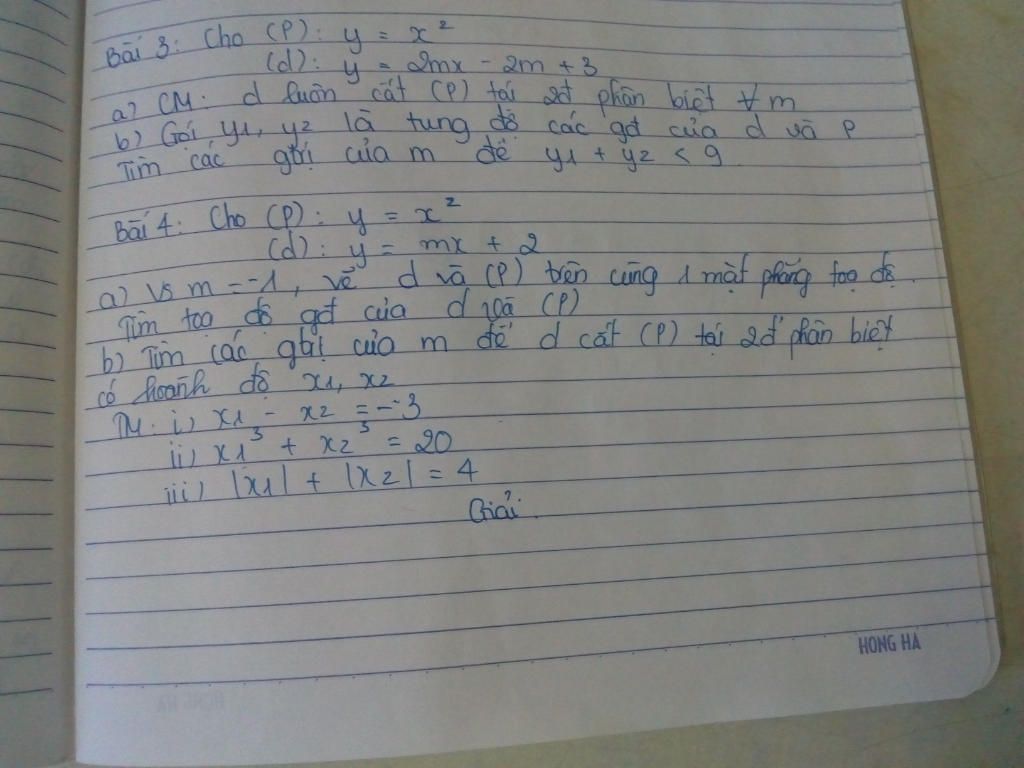 Bài 3: Cho (P): y = x²
(d): y = 2mx - 2m + 3
a) CM: d luôn cắt (P) tại 2đ phân biệt ∀ m
b) Gọi y1, y2 là tung độ các gđ của d và P
Tìm các gtrị của m để y1 + y2 < 9
Bài 4: Cho (P): y = x²
(d): y = mx + 2
a) Vs m = -1, vẽ d và (P) trên cùng 1 mặt phẳng toạ độ.
Tìm toạ độ gđ của d và (P)
b) Tìm các gtrị của m để d cắt (P) tại 2đ phân biệt
có hoành độ x1, x2
TM: i) x1 - x2 = -3
ii) x1³ + x2³ = 20
iii) |x1| + |x2| = 4
Giải:
HONG HA